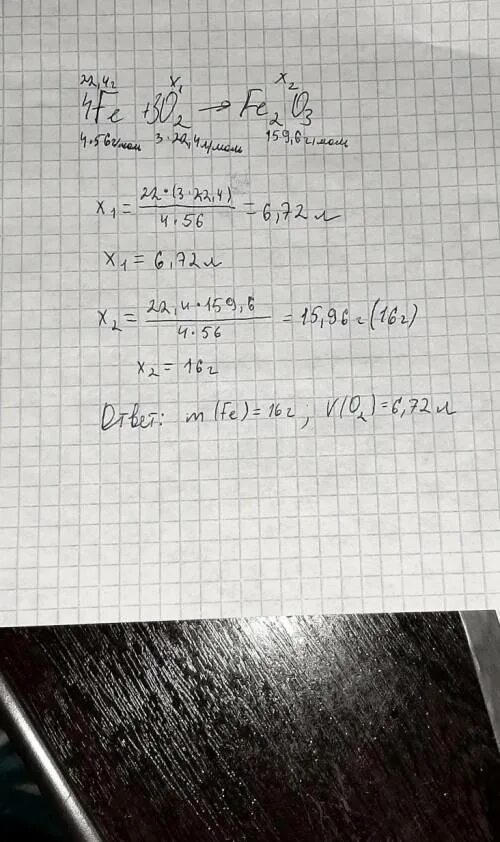 22,4г x₁ x₂
4Fe + 3O₂ → Fe₂O₃
4·56г/моль 3·22,4л/моль 159,6г/моль
x₁ = 22·(3·22,4) / 4·56 = 6,72 л
x₁ = 6,72 л
x₂ = 22,4·159,6 / 4·56 = 15,96 г (16г)
x₂ = 16г
Ответ: m (Fe) = 16г ; V(O₂) = 6,72 л